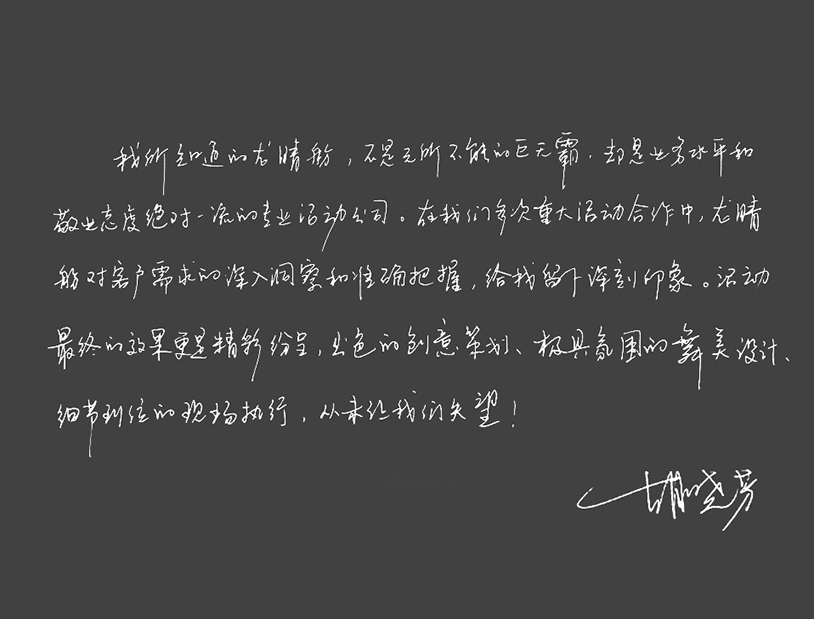 我所知道的尤晴舫，不是无所不能的巨无霸，却是业务水平和
敬业态度绝对一流的专业活动公司。在我们多次重大活动合作中，尤晴
舫对客户需求的深入洞察和准确把握，给我留下深刻印象。活动
最终的效果更是精彩纷呈，出色的创意策划、极具氛围的舞美设计、
细节到位的现场执行，从未让我们失望！
胡晓芳